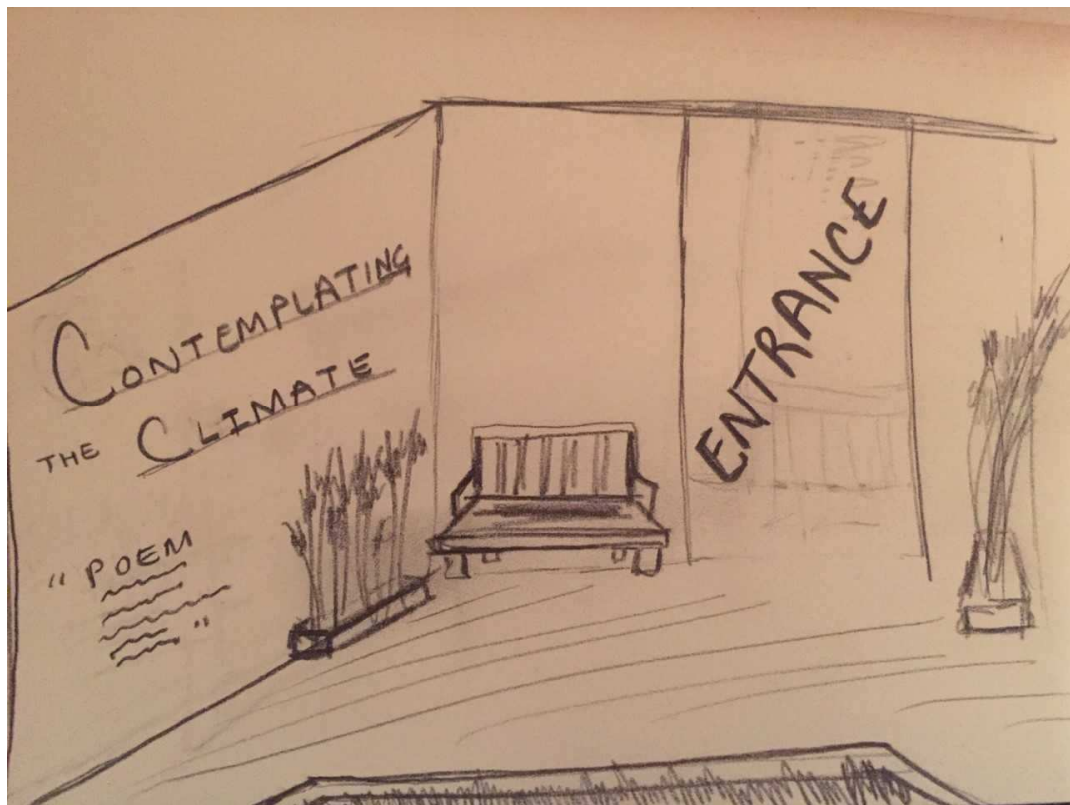 CONTEMPLATING
THE CLIMATE
"POEM
"
ENTRANCE